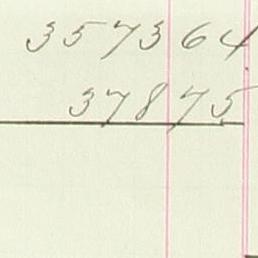 357364
37875